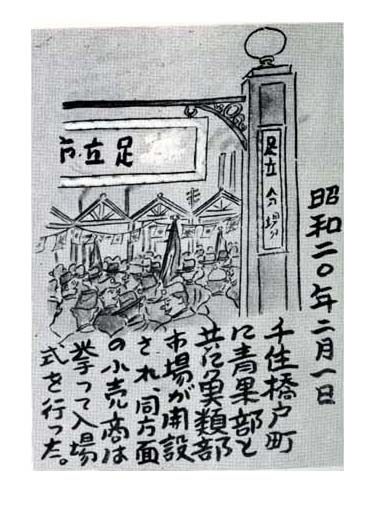 昭和二〇年二月一日
足立分場
足立市
千住橋戸町
に青果部と
共に魚類部
市場が開設
され、同方面
の小売商は
挙って入場
式を行った。